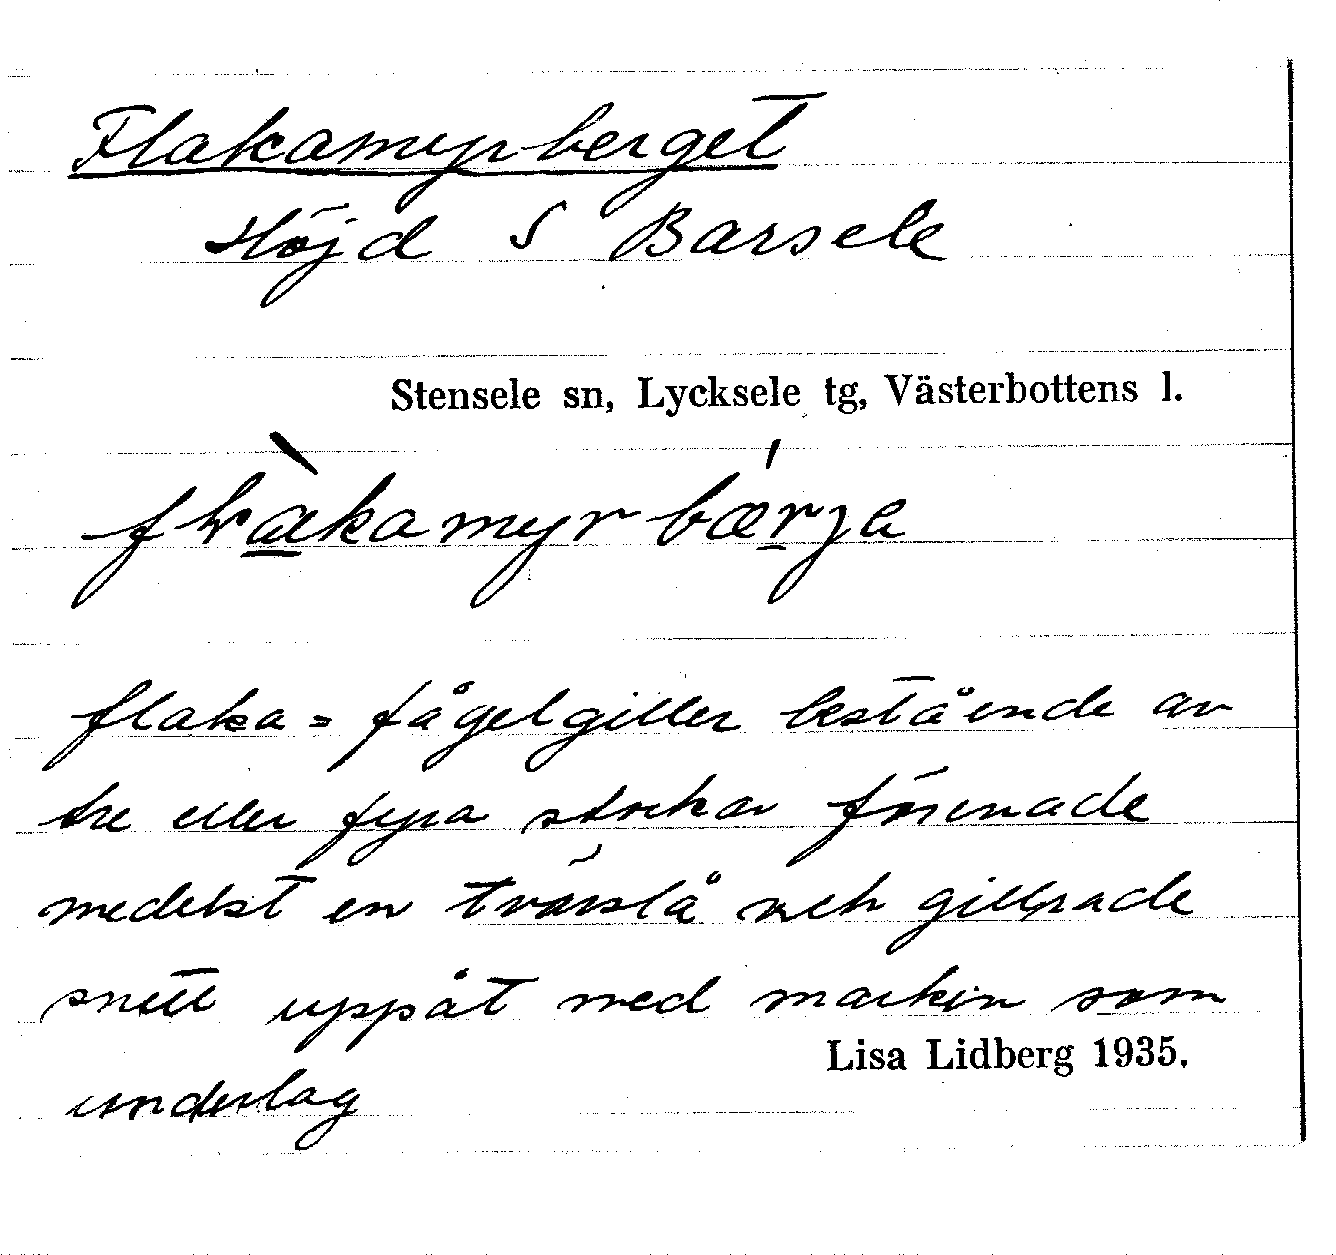 Flakamyrberget
Höjd S Barsele
Stensele sn, Lycksele tg, Västerbottens l.
flaka = fågelgiller bestående av
tre eller fyra stockar förenade
medelst en tvärslå och gillrade
snett uppåt med marken som
Lisa Lidberg 1935.
underlag